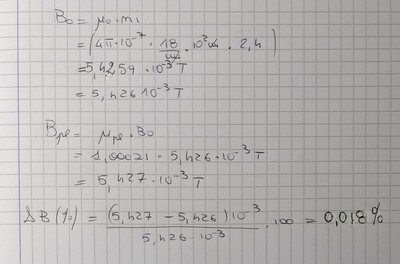 B₀ = μ₀ · n i
= (4π·10⁻⁷ · 18/cm · 10² cm · 2,4)
= 5,4259 · 10⁻³ T
= 5,426 10⁻³ T
Bₚₑ = μₚₑ · B₀
= 1,00021 · 5,426 · 10⁻³ T
= 5,427 · 10⁻³ T
ΔB (%) = (5,427 − 5,426) 10⁻³ / 5,426 · 10⁻³ · 100 = 0,018 %